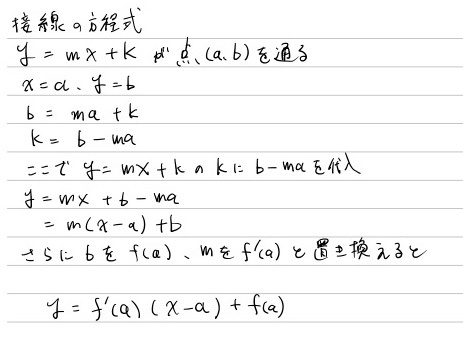 接線の方程式
y = mx + k が 点 (a, b) を通る
x = a、y = b
b = ma + k
k = b - ma
ここで y = mx + k の k に b - ma を代入
y = mx + b - ma
= m(x - a) + b
さらに b を f(a)、m を f'(a) と置き換えると
y = f'(a) (x - a) + f(a)